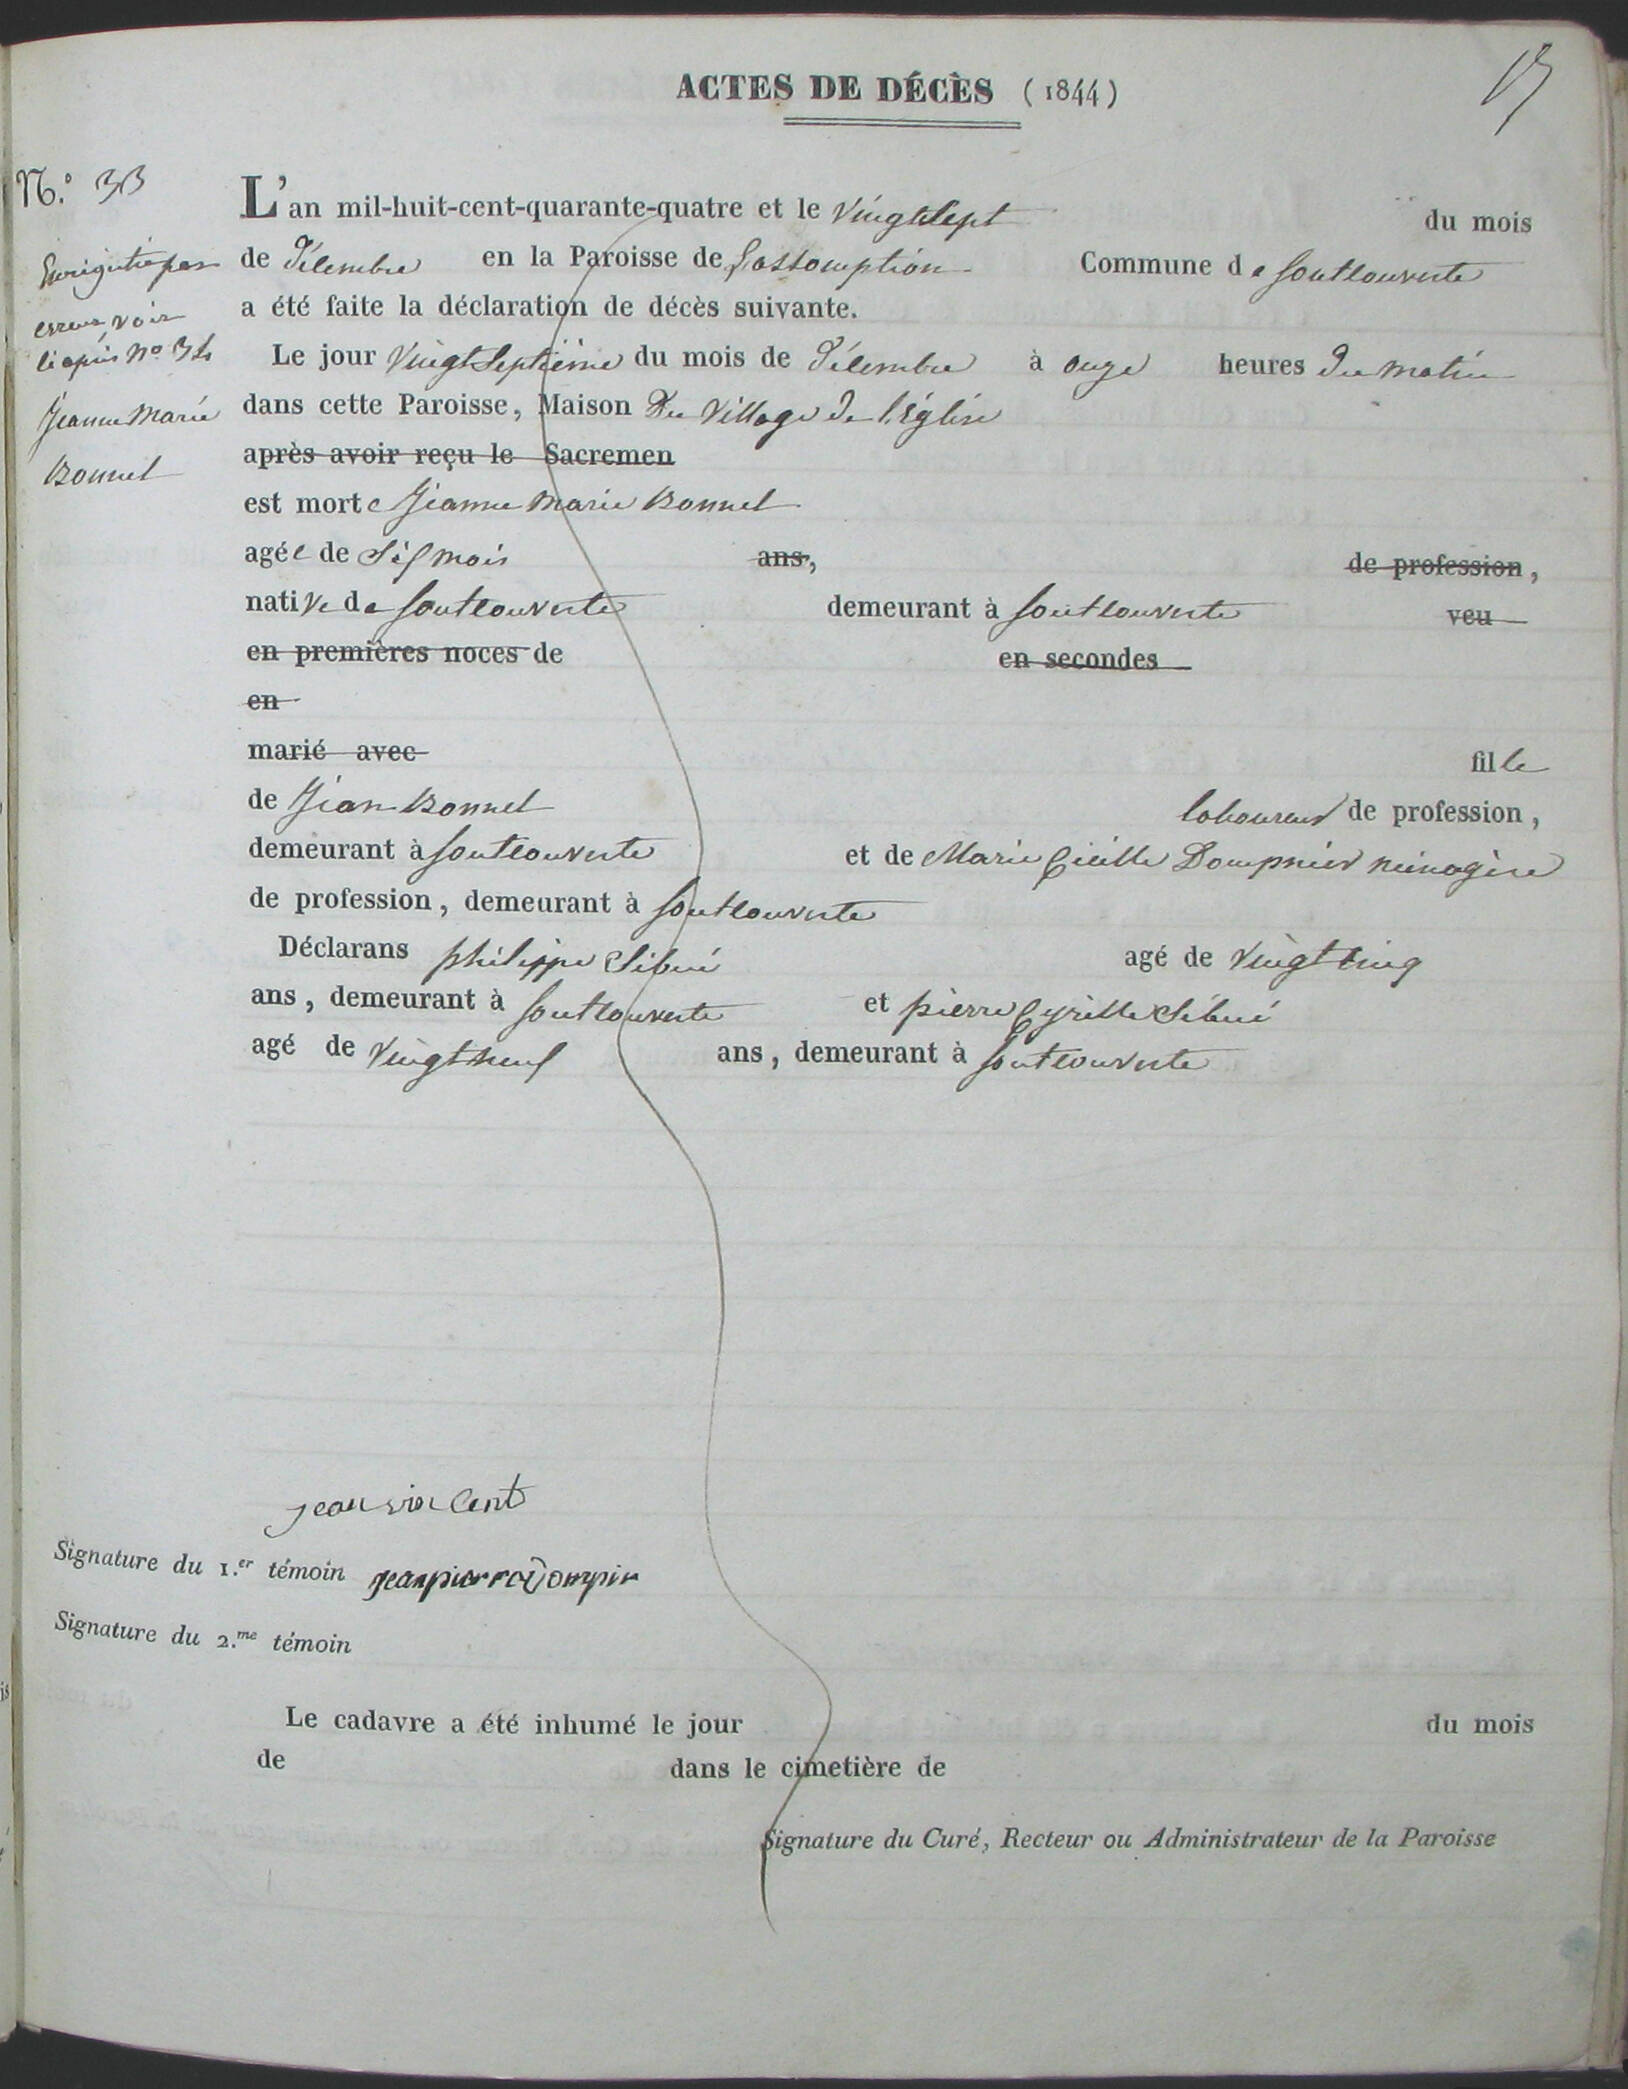 ACTES DE DÉCÈS (1844)
N.º 33
Enrigistré par
erreur voir
ci après Nº 34
Jeanne Marie
Bonnel
L'an mil-huit-cent-quarante-quatre et le vingt sept du mois
de Décembre en la Paroisse de L'assomption Commune de Fontcouverte
a été faite la déclaration de décès suivante.
Le jour vingt septième du mois de Décembre à onze heures du matin
dans cette Paroisse, Maison Du village de l'église
après avoir reçu le Sacremen
est morte Jeanne Marie Bonnel
agée de Six mois ans, de profession,
native de Fontcouverte demeurant à Fontcouverte veu
en premières noces de en secondes
en
marié avec fille
de Jean Bonnel laboureur de profession,
demeurant à Fontcouverte et de Marie Cécille Dompnier ménagère
de profession, demeurant à Fontcouverte
Déclarans philippe Sibué agé de vingt cinq
ans, demeurant à Fontcouverte et pierre Cyrille Sibué
agé de vingt neuf ans, demeurant à Fontcouverte
jean vincent
Signature du 1.er témoin jean pierre Dompnier
Signature du 2.me témoin
Le cadavre a été inhumé le jour du mois
de dans le cimetière de
Signature du Curé, Recteur ou Administrateur de la Paroisse